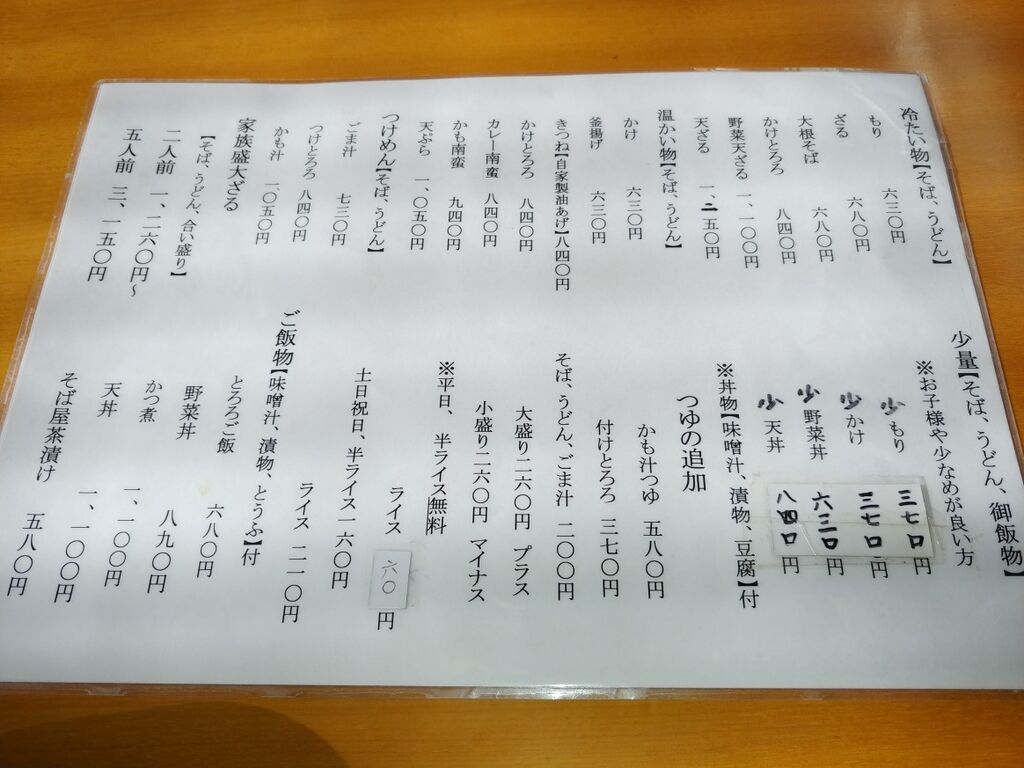 冷たい物【そば、うどん】
もり 六三〇円
ざる 六八〇円
大根そば 六八〇円
かけとろろ 八四〇円
野菜天ざる 一、一〇〇円
天ざる 一、二五〇円
温かい物【そば、うどん】
かけ 六三〇円
釜揚げ 六三〇円
きつね【自家製油あげ】八四〇円
かけとろろ 八四〇円
カレー南蛮 八四〇円
かも南蛮 九四〇円
天ぷら 一、〇五〇円
つけめん【そば、うどん】
ごま汁 七三〇円
つけとろろ 八四〇円
かも汁 一、〇五〇円
家族盛大ざる
【そば、うどん、合い盛り】
二人前 一、二六〇円～
五人前 三、一五〇円
少量【そば、うどん、御飯物】
※お子様や少なめが良い方
少もり 三七〇円
少かけ 三七〇円
少野菜丼 六三〇円
少天丼 八四〇円
※丼物【味噌汁、漬物、豆腐】付
つゆの追加
かも汁つゆ 五八〇円
付けとろろ 三七〇円
そば、うどん、ごま汁 二〇〇円
大盛り二六〇円 プラス
小盛り二六〇円 マイナス
※平日、半ライス無料
ライス 六〇円
土日祝日、半ライス一六〇円
ライス 二一〇円
ご飯物【味噌汁、漬物、とうふ】付
とろろご飯 六八〇円
野菜丼 八九〇円
かつ煮 一、一〇〇円
天丼 一、一〇〇円
そば屋茶漬け 五八〇円